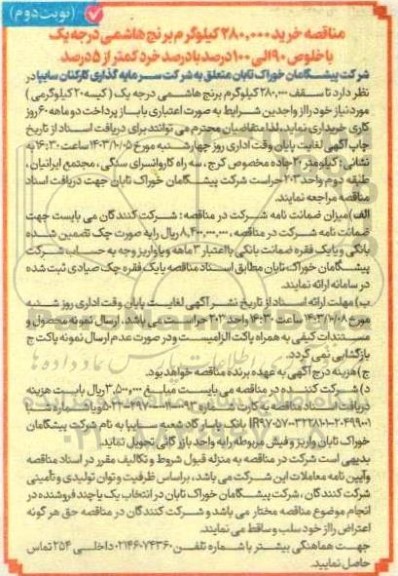 (نوبت دوم)
مناقصه خرید ۲۸۰,۰۰۰ کیلوگرم برنج هاشمی درجه یک
با خلوص ۹۰ الی ۱۰۰ درصد با درصد خرد کمتر از ۵ درصد
شرکت پیشگامان خوراک تابان متعلق به شرکت سرمایه گذاری کارکنان سایپا در
نظر دارد تا سقف ۲۸۰,۰۰۰ کیلوگرم برنج هاشمی درجه یک (کیسه ۲۰ کیلوگرمی)
مورد نیاز خود را از واجدین شرایط به صورت اعتباری با باز پرداخت دو ماهه ۶۰ روز
کاری خریداری نماید، لذا متقاضیان محترم می توانند برای دریافت اسناد از تاریخ
چاپ آگهی لغایت پایان وقت اداری روز چهارشنبه مورخ ۱۴۰۳/۱۰/۰۵ ساعت ۱۶:۳۰ به
نشانی: کیلومتر ۲۰ جاده مخصوص کرج، سه راه کاروانسرای سنگی، مجتمع ایرانیان،
طبقه دوم واحد ۲۰۳ حراست شرکت پیشگامان خوراک تابان جهت دریافت اسناد
مناقصه مراجعه نمایند.
الف) میزان ضمانت نامه شرکت در مناقصه: شرکت کنندگان می بایست جهت
ضمانت نامه شرکت در مناقصه، ۸,۴۰۰,۰۰۰,۰۰۰ ریال را به صورت چک تضمین شده
بانکی و یا یک فقره ضمانت بانکی با اعتبار ۳ ماهه و یا واریز وجه به حساب شرکت
پیشگامان خوراک تابان مطابق اسناد مناقصه یا یک فقره چک صیادی ثبت شده
در سامانه ارائه نمایند.
ب) مهلت ارائه اسناد از تاریخ نشر آگهی لغایت پایان وقت اداری روز شنبه
مورخ ۱۴۰۳/۱۰/۰۸ ساعت ۱۴:۳۰ واحد ۲۰۳ حراست می باشد. ارسال نمونه محصول و
مستندات کیفی به همراه پاکت الزامیست و در صورت عدم ارسال نمونه پاکت ج
بازگشایی نمی گردد.
ج) هزینه درج آگهی به عهده برنده مناقصه خواهد بود.
د) شرکت کننده در مناقصه می بایست مبلغ ۳,۵۰۰,۰۰۰ ریال بابت هزینه
دریافت اسناد مناقصه به کارت شماره و یا شماره شبا
بانک پاسارگاد شعبه سایپا به نام شرکت پیشگامان
خوراک تابان واریز و فیش مربوطه را به واحد بازرگانی تحویل نماید.
بدیهی است شرکت در مناقصه به منزله قبول شروط و تکالیف مقرر در اسناد مناقصه
و آیین نامه معاملات این شرکت می باشد، براساس ظرفیت و توان تولیدی و تأمینی
شرکت کنندگان، شرکت پیشگامان خوراک تابان در انتخاب یک یا چند فروشنده در
انجام موضوع مناقصه مختار می باشد و شرکت کنندگان در مناقصه حق هرگونه
اعتراض را از خود سلب و ساقط می نمایند.
جهت هماهنگی بیشتر با شماره تلفن ۰۲۱۴۶۰۷۴۳۶۰ داخلی ۲۵۴ تماس
حاصل نمایید.